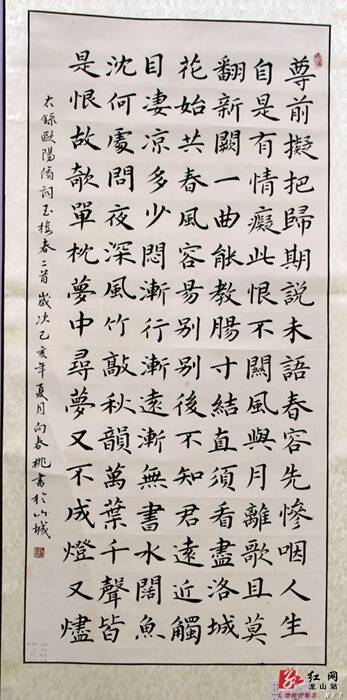 尊前擬把歸期說未語春容先慘咽人生
自是有情癡此恨不關風與月離歌且莫
翻新闋一曲能教腸寸結直須看盡洛城
花始共春風容易別別後不知君遠近觸
目凄涼多少悶漸行漸遠漸無書水闊魚
沈何處問夜深風竹敲秋韻萬葉千聲皆
是恨故欹單枕夢中尋夢又不成燈又燼
右錄歐陽脩詞玉樓春二首歲次己亥年夏月向春桃書於山城
红网
龙山站